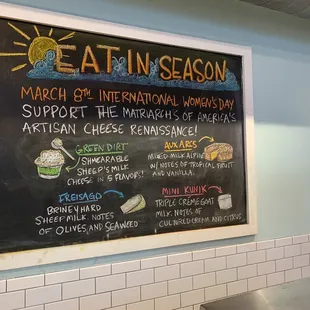 EAT IN SEASON
MARCH 8TH INTERNATIONAL WOMEN'S DAY
SUPPORT THE MATRIARCHS OF AMERICA'S
ARTISAN CHEESE RENAISSANCE!
GREEN DIRT
SHMEARABLE
SHEEP'S MILK
CHEESE IN 5 FLAVORS!
AUX ARCS
MIXED MILK ALPINE
W/ NOTES OF TROPICAL FRUIT
AND VANILLA.
FREISAGO
BRINEY HARD
SHEEP MILK. NOTES
OF OLIVES, AND SEAWEED
MINI KUNIK
TRIPLE CRÈME GOAT
MILK. NOTES OF
CULTURED CREAM AND
CITRUS